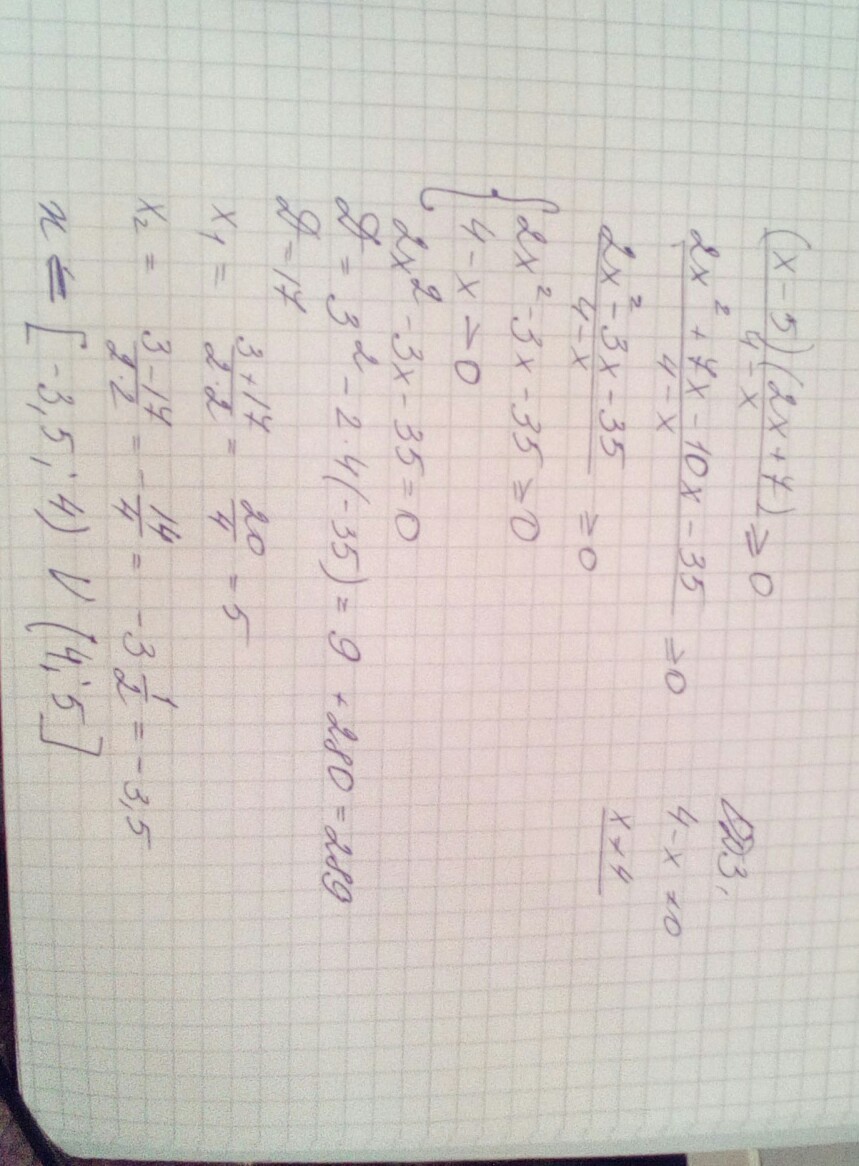 (x-5)(2x+7)/4-x ⩾ 0
2x² + 7x - 10x - 35/4-x ⩾ 0
2x² - 3x - 35/4-x ⩾ 0
{ 2x² - 3x - 35 ⩾ 0
4 - x > 0
2x² - 3x - 35 = 0
D = 3² - 2·4(-35) = 9 + 280 = 289
D = 17
x₁ = 3+17/2·2 = 20/4 = 5
x₂ = 3-17/2·2 = -14/4 = -3 1/2 = -3,5
x ∈ [-3,5; 4) ∪ (4; 5]
ОДЗ:
4 - x ≠ 0
x ≠ 4